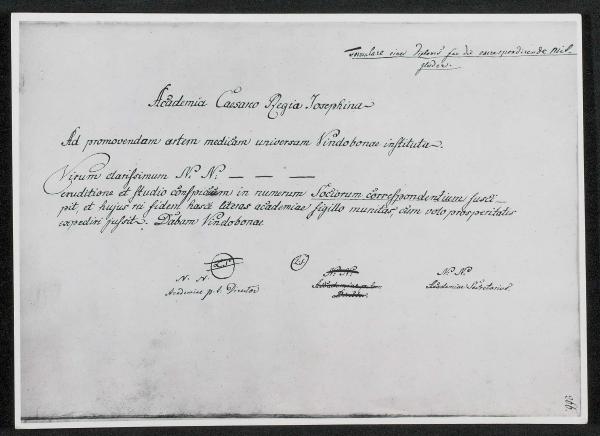 Formulare eines Diploms für die correspondirende Mit-
glieder.
Academia Caesareo Regia Josephina
Ad promovendam artem medicam universam Vindobonae instituta
Virum clarissimum N: N: — — —
eruditione et studio conspicuum in numerum Sociorum correspondentium susce-
pit, et hujus rei fidem hasce literas academiae sigillo munitas, cum voto prosperitatis
expediri jussit. Dabam Vindobonae
L.S.
L.S.
N. N.
Academiae p. t. Director
N: N:
Academiae p. t.
Director
N: N:
Academiae Secretarius